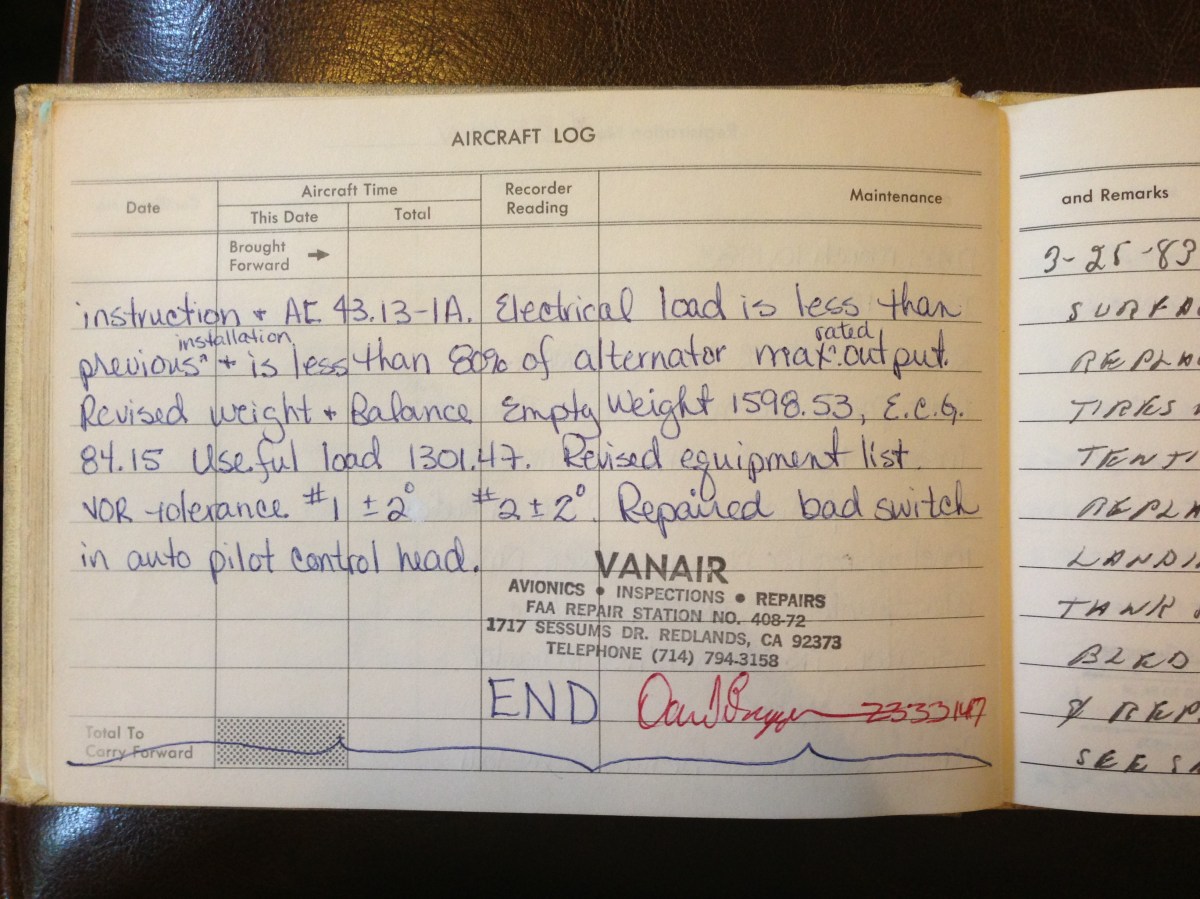 AIRCRAFT LOG
Date
Aircraft Time
This Date
Total
Recorder
Reading
Maintenance
Brought
Forward
instruction + AC 43.13-1A. Electrical load is less than
previous ^ installation + is less than 80% of alternator max. ^ rated output.
Revised weight + Balance Empty Weight 1598.53, E.C.G.
84.15 Useful load 1301.47. Revised equipment list.
VOR tolerance #1 ±2° #2 ±2°. Repaired bad switch
in auto pilot control head.
VANAIR
AVIONICS • INSPECTIONS • REPAIRS
FAA REPAIR STATION NO. 408-72
1717 SESSUMS DR. REDLANDS, CA 92373
TELEPHONE (714) 794-3158
END 2333147
Total To
Carry Forward
and Remarks
3-25-83
SURFA
REPLA
TIRES
TENTI
REPLA
LANDI
TANK
BLED
& REP
SEE SA